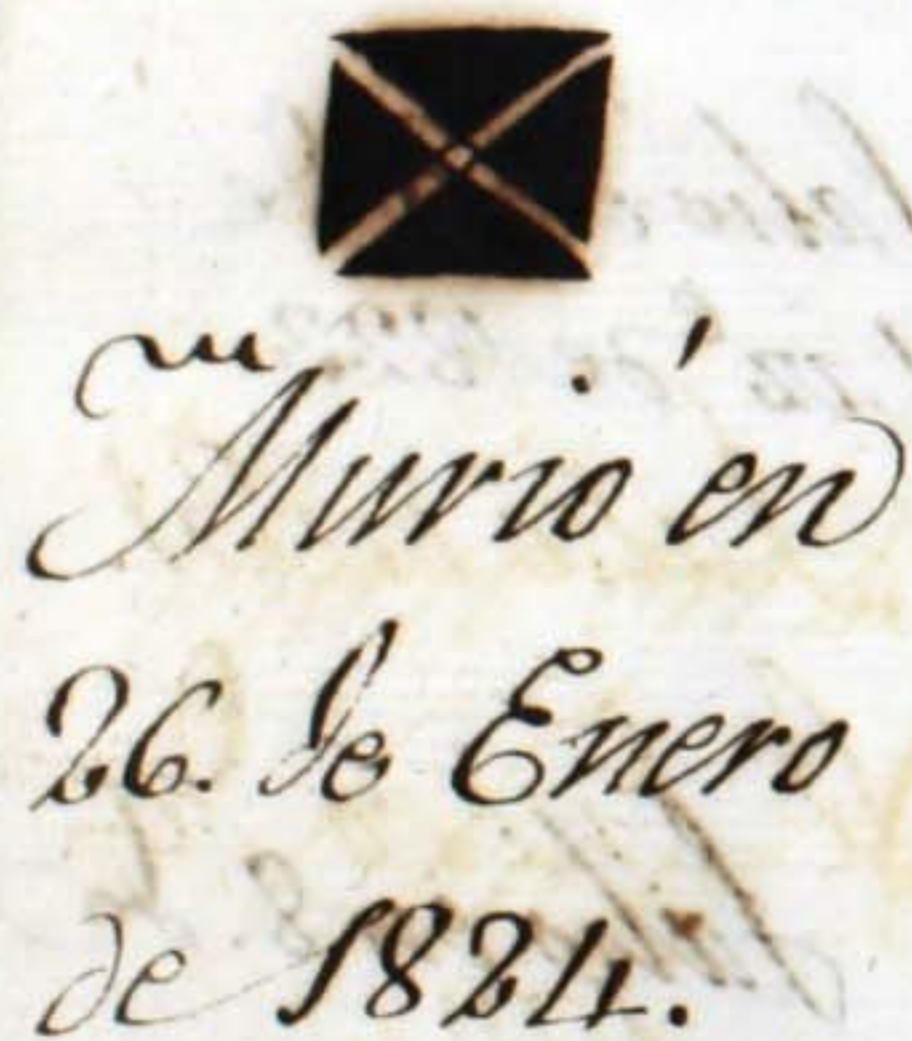 Murió en
26. de Enero
de 1824.